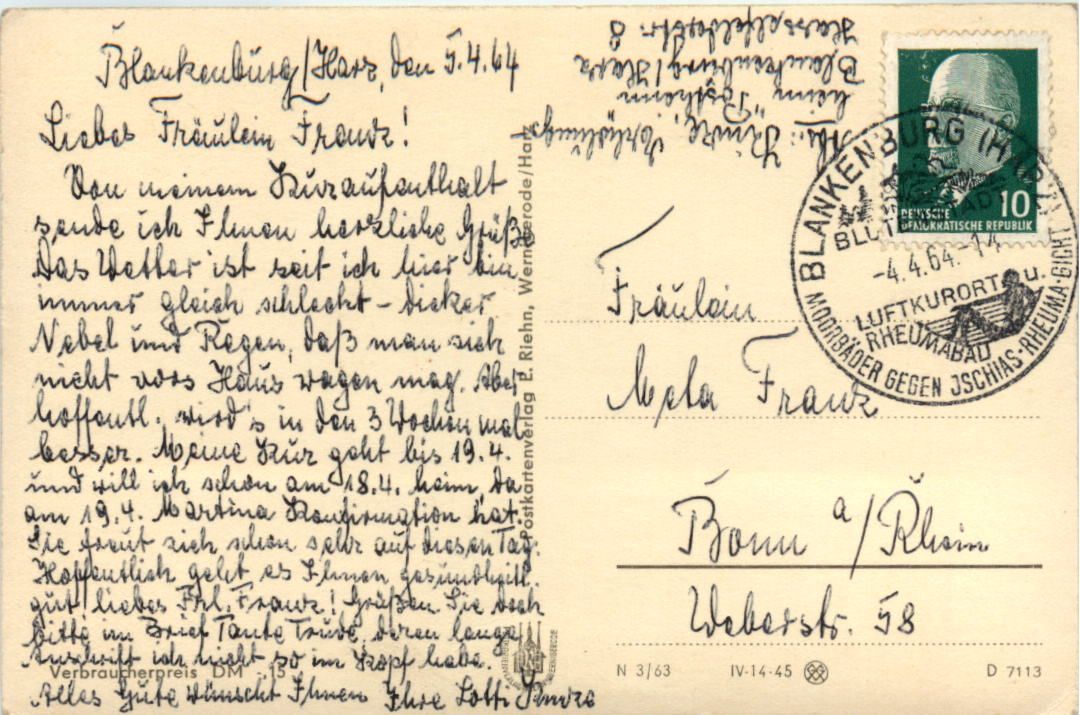 Blankenburg/Harz, den 5.4.64
Liebes Fräulein Franz!
Von meinem Kuraufenthalt
sende ich Ihnen herzliche Grüße.
Das Wetter ist seit ich hier bin
immer gleich schlecht – dicker
Nebel und Regen, daß man sich
nicht vors Haus wagen mag. Aber
hoffentl. wird's in den 3 Wochen mal
besser. Meine Kur geht bis 19.4.
und will ich schon am 18.4. heim, da
am 19.4. Martina Konfirmation hat.
Sie freut sich schon sehr auf diesen Tag.
Hoffentlich geht es Ihnen gesundheitl.
gut, liebes Frl. Franz! Grüßen Sie doch
bitte im Brief Tante Trude, deren lange
Anschrift ich nicht so im Kopf habe.
Alles Gute wünscht Ihnen Ihre Lotti
Verbraucherpreis DM -.15
Postkartenverlag E. Riehn, Wernigerode/Harz
Abs.: Erholungs-
heim "Postheim"
Blankenburg/Harz
Hasselfelderstr. 8
DEUTSCHE
DEMOKRATISCHE REPUBLIK
10
BLANKENBURG (HARZ)
-4.4.64.-14
LUFTKURORT u.
RHEUMABAD
MOORBÄDER GEGEN JSCHIAS-RHEUMA-GICHT
Fräulein
Meta Franz
Bonn a/Rhein
Weberstr. 58
N 3/63 IV-14-45 D 7113